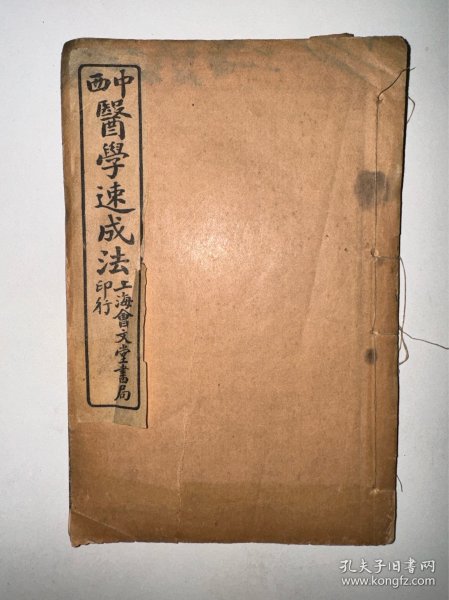 中西
醫學速成法
上海會文堂書局
印行
孔夫子旧书网
www.kongfz.com